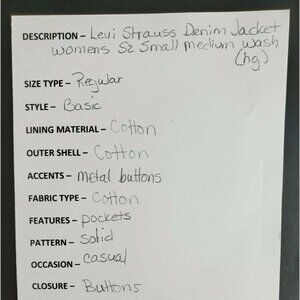 DESCRIPTION – Levi Strauss Denim Jacket
womens Sz Small medium wash
(hg)
SIZE TYPE – Regular
STYLE – Basic
LINING MATERIAL – Cotton
OUTER SHELL – Cotton
ACCENTS – metal buttons
FABRIC TYPE – Cotton
FEATURES – pockets
PATTERN – Solid
OCCASION – casual
CLOSURE – Buttons